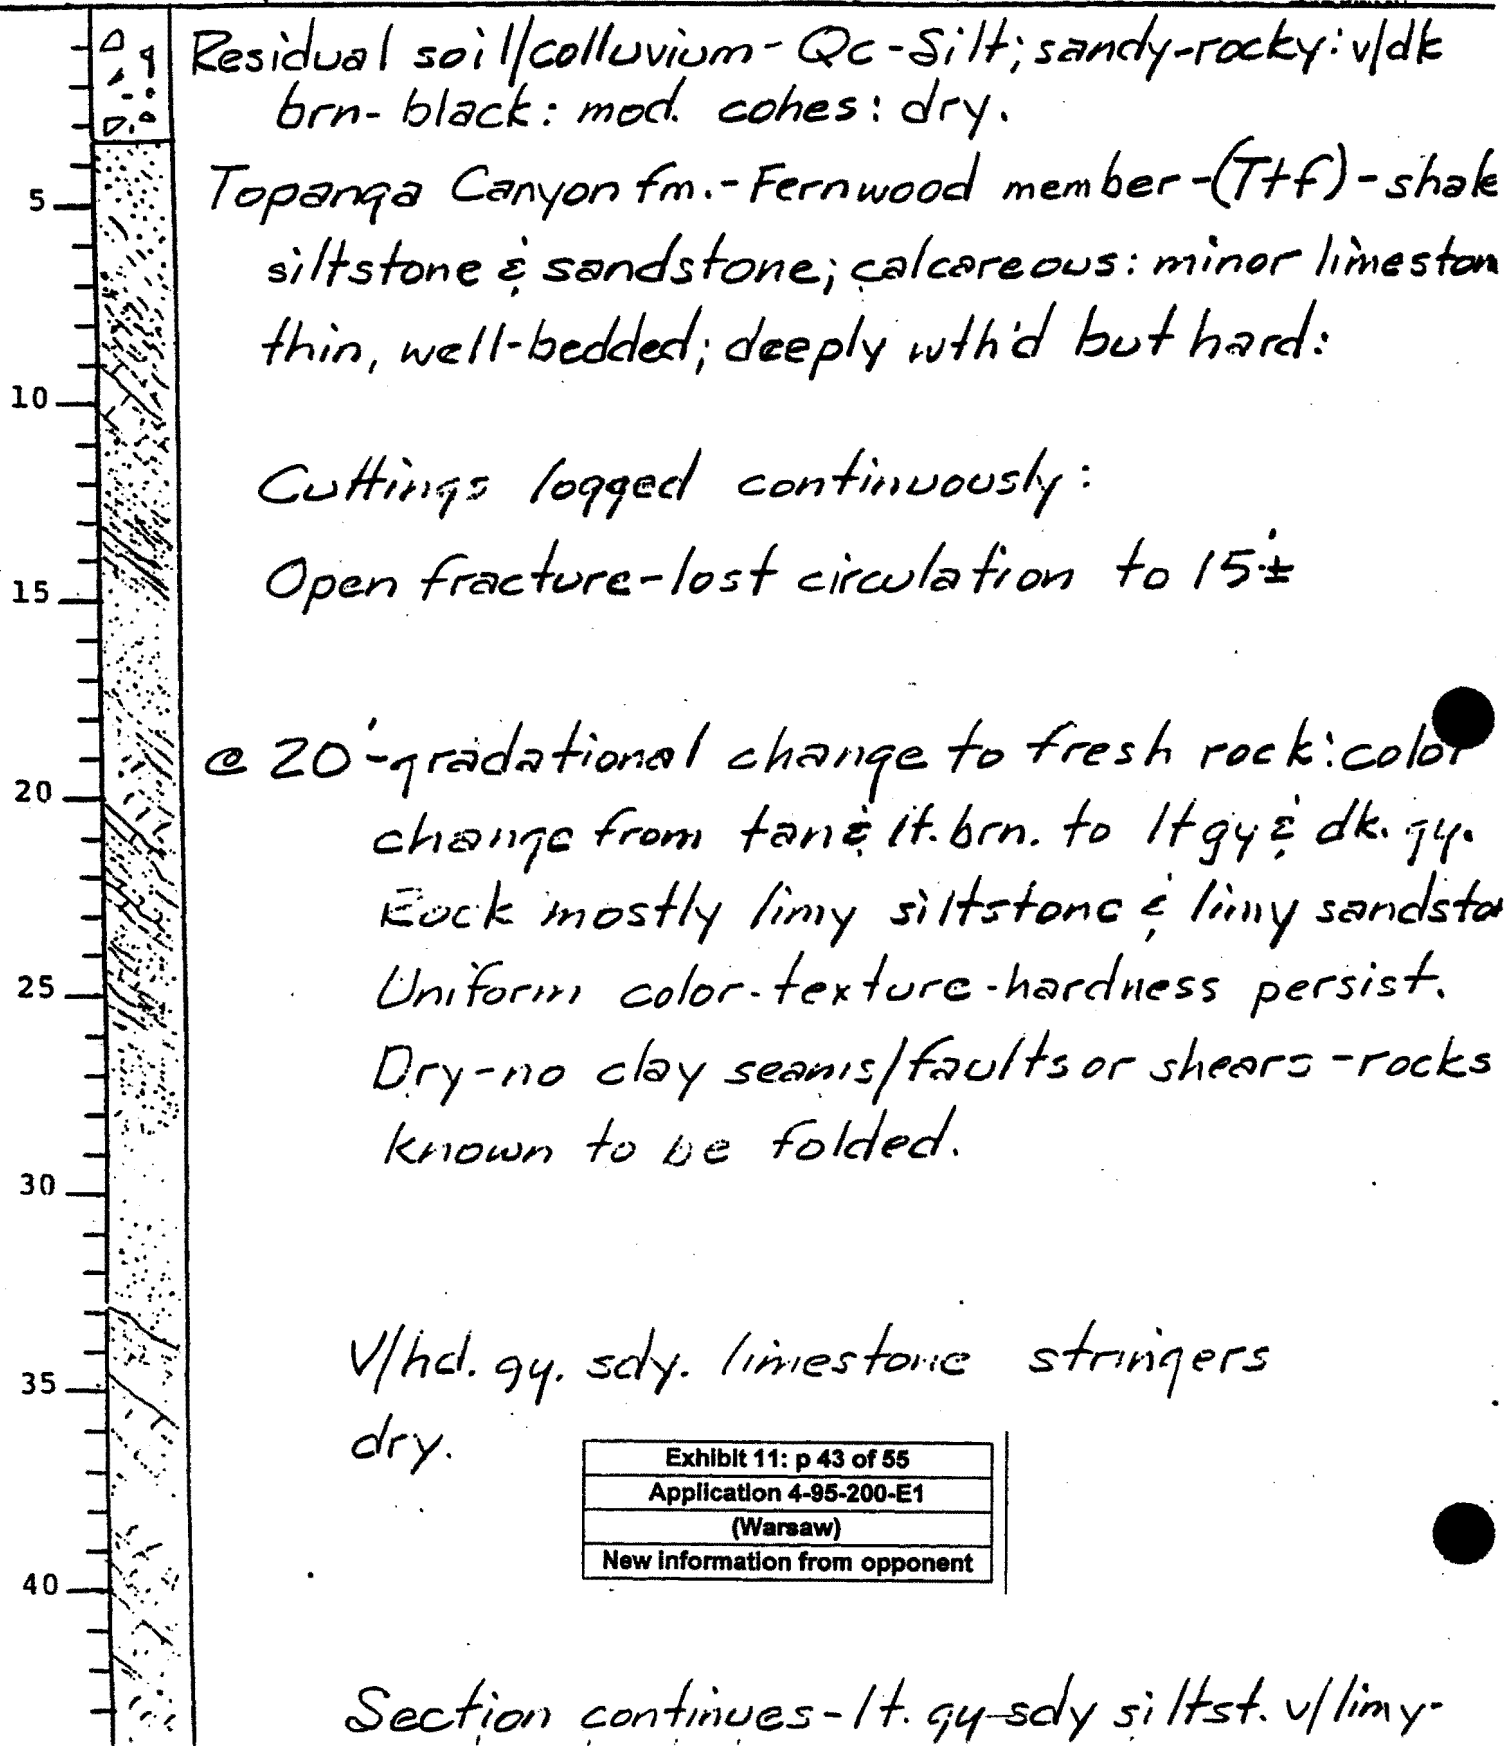 Residual soil/colluvium - Qc - Silt; sandy-rocky: v/dk
brn- black: mod. cohes: dry.
5
Topanga Canyon fm. - Fernwood member - (Ttf) - shale
siltstone & sandstone; calcareous: minor limeston
thin, well-bedded; deeply wth'd but hard:
10
Cuttings logged continuously:
Open fracture - lost circulation to 15'±
15
@ 20' - gradational change to fresh rock: color
20
change from tan & lt. brn. to lt gy & dk. gy.
Rock mostly limy siltstone & limy sandsto
Uniform color-texture-hardness persist.
25
Dry - no clay seams/faults or shears - rocks
known to be folded.
30
V/hd. gy. sdy. limestone stringers
35
dry.
Exhibit 11: p 43 of 55
Application 4-95-200-E1
(Warsaw)
New information from opponent
40
Section continues - lt. gy-sdy siltst. v/limy-